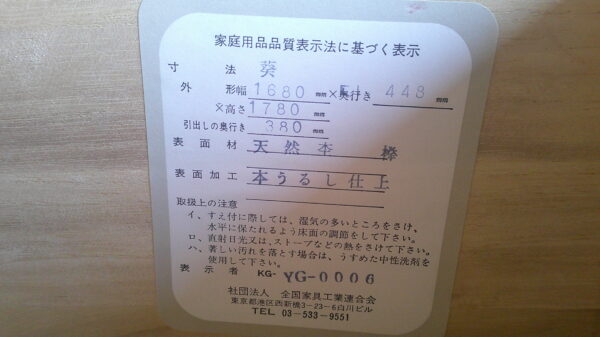 家庭用品品質表示法に基づく表示
寸法 葵
外形幅 1680 mm ×奥行き 448 mm
×高さ 1780 mm
引出しの奥行き 380 mm
表面材 天然杢 樺
表面加工 本うるし仕上
取扱上の注意
イ、すえ付に際しては、湿気の多いところをさけ、
水平に保たれるよう床面の調節をして下さい。
ロ、直射日光又は、ストーブなどの熱をさけて下さい。
ハ、著しい汚れを落とす場合は、うすめた中性洗剤を
使用して下さい。
表示者 KG- YG-0006
社団法人 全国家具工業連合会
東京都港区西新橋3-23-6白川ビル
TEL 03-533-9551